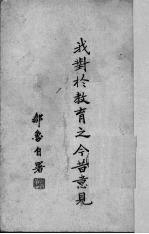 我對於教育之今昔意見
郝秀自署